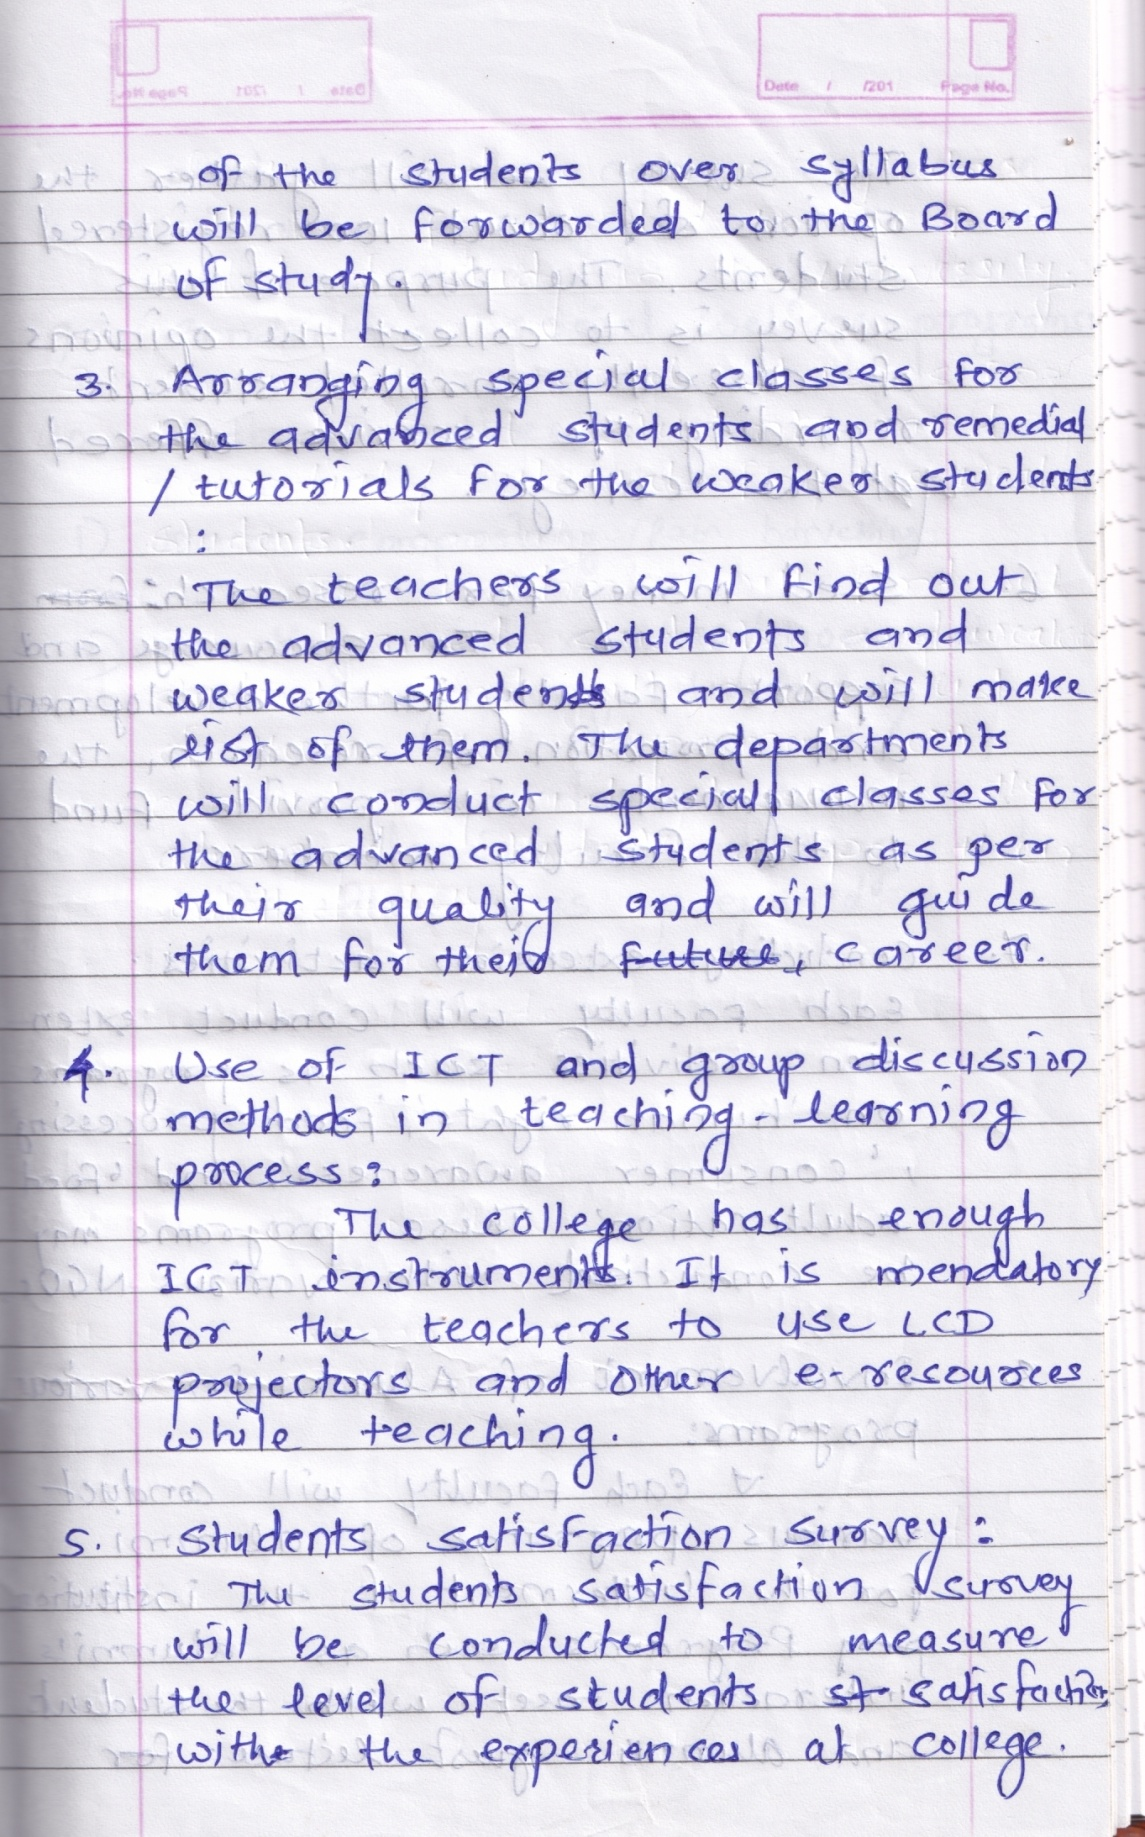 Date / /201 Page No.
of the students over syllabus
will be forwarded to the Board
of study.
3. Arranging special classes for
the advanced students and remedial
/ tutorials for the weaker students
:
The teachers will find out
the advanced students and
weaker students and will make
list of them. The departments
will conduct special classes for
the advanced students as per
their quality and will guide
them for their future, career.
4. Use of ICT and group discussion
methods in teaching-learning
process:
The college has enough
ICT instruments. It is mendatory
for the teachers to use LCD
projectors and other e-resources
while teaching.
5. Students satisfaction survey:
The students satisfaction survey
will be conducted to measure
the level of students st satisfaction
withe the experiences at college.